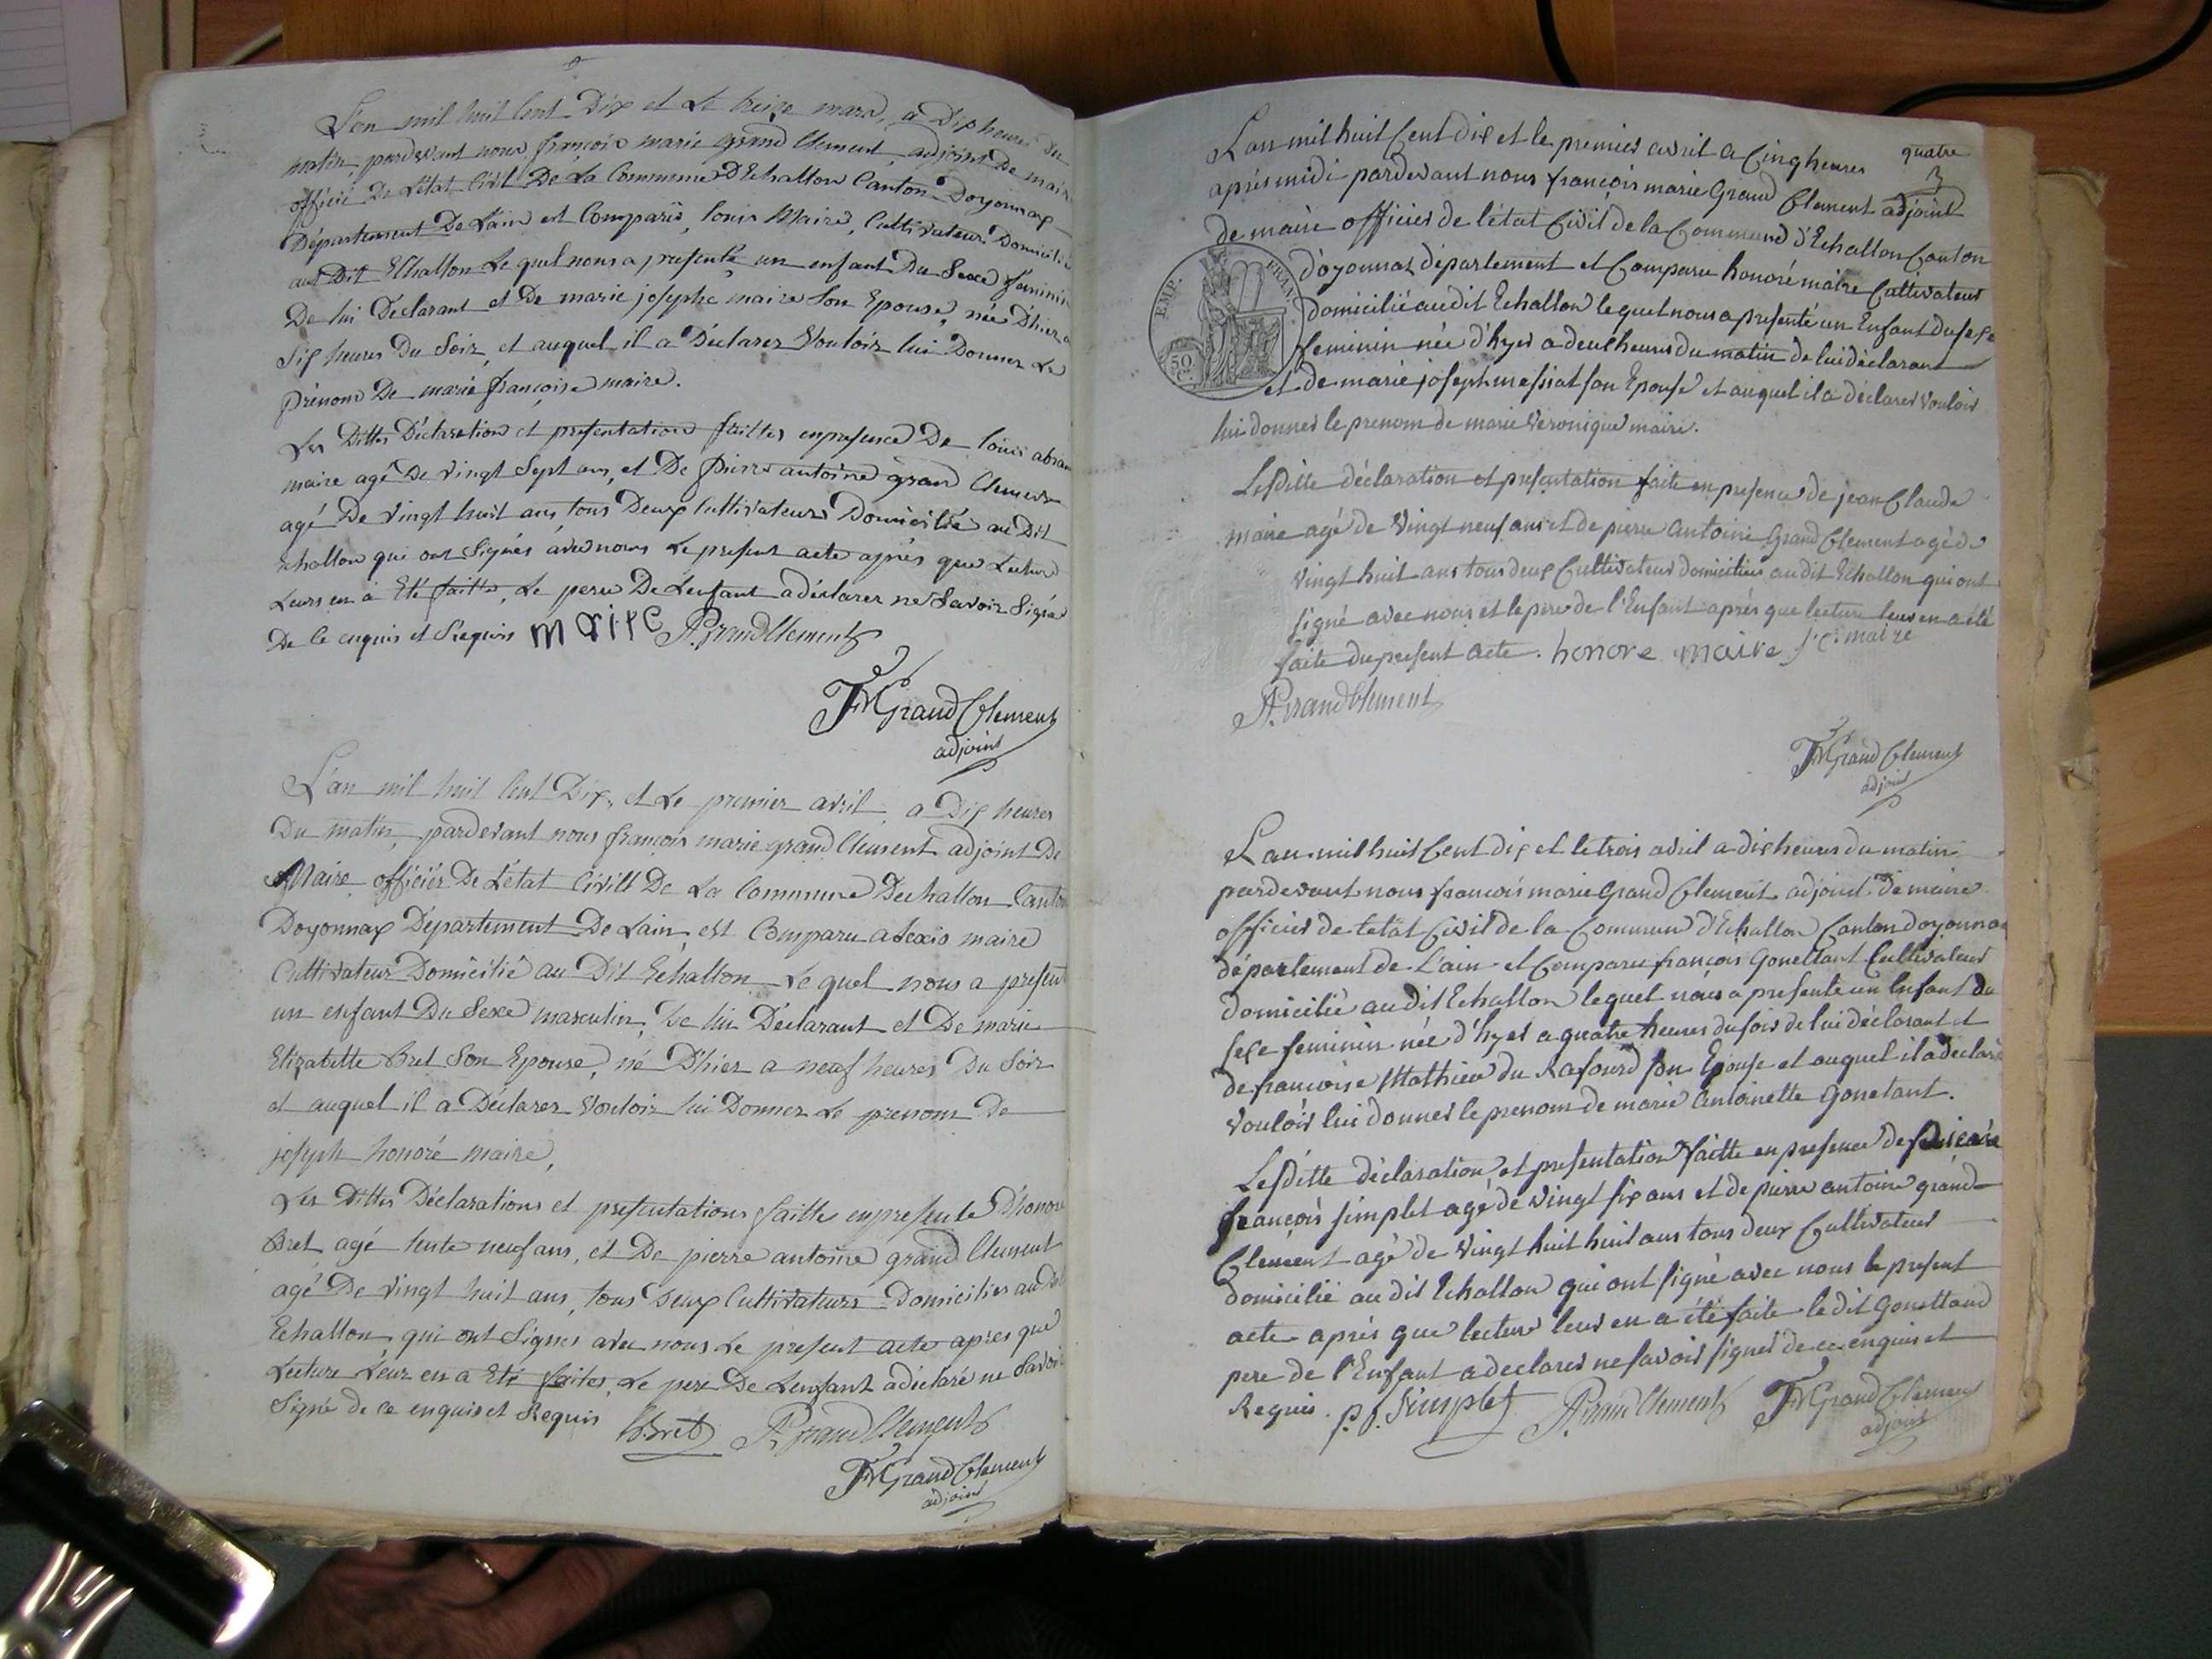 L'an mil huit Cent Dix et Le treize mars, a Dix heures du
matin, pardevant nous françois marie grand Clement, adjoint De maire
officié De L'état Civil De La Commune D'Echallon Canton Doyonnax
Département De Lain est Comparû, louis Maire, Cultivateur Domicilié
au Dit Echallon Le quel nous a presenté un enfant Du Sexe feminin
De lui Déclarant et De marie josephe maire Son Epouse, née D'hier a
Six heures Du Soir, et auquel il a Déclarer Vouloir lui Donner Le
prénom De marie françoise maire.
Les Dittes Déclaration et presentation faittes en presence De louis abram
maire agé De vingt Sept ans, et De pierre antoine grand Clement
agé De vingt huit ans tous Deux Cultivateurs Domicilié au Dit
Echallon qui ont Signés avec nous Le present acte après que Lecture
Leurs en à Eté faitte, Le pere De Lenfant a déclarer ne Savoir Signé
De ce enquis et Requis maire P. grand Clement
FM Grand Clement
adjoint
L'an mil huit Cent Dix, et Le premier avril, a Dix heures
Du matin, pardevant nous françois marie grand Clement adjoint De
Maire officier De L'état Civill De La Commune Dechallon Canton
Doyonnax Département De Lain, est Comparu alexis maire
Cultivateur Domicilié au Dit Echallon Le quel nous a present
un enfant Du Sexe masculin, De lui Déclarant et De marie
Elizabette Bret Son Epouse, né D'hier a neuf heures Du Soir
et auquel il a Déclarer Vouloir lui Donner Le prenom De
joseph honoré maire,
Les Dittes Déclarations et presentations faitte en presente D'honoré
Bret agé tente neuf ans, et De pierre antoine grand Clement
agé De vingt huit ans, tous Deux Cultivateurs Domiciliés au Dit
Echallon qui ont Signés avec nous Le present acte apres que
Lecture Leur en a Eté faites, Le pere De Lenfant a déclaré ne Savoir
Signé de ce enquis et Requis hBret P. grand Clement
FM Grand Clement
adjoint
quatre
3
L'an mil huit Cent dix et le premier avril a Cinq heures
après midi pardevant nous françois marie Grand Clement adjoint
de maire officier de l'état Civil de la Commune d'Echallon Canton
d'oyonnax département et Comparu honoré maire Cultivateur
domicilié audit Echallon lequel nous a presenté un Enfant du sexe
feminin née d'hyer a deux heures du matin de lui déclarant
et de marie joseph messiat son Epouse et auquel il a déclarer vouloir
lui donner le prenom de marie Veronique maire.
EMP. FRAN.
50
C.
Lesditte déclaration et presentation faite en presence de jean Claude
maire agé de vingt neuf ans et de pierre Antoine Grand Clement agé de
vingt huit ans tous deux Cultivateur domicilier audit Echallon qui ont
signé avec nous et le pere de l'Enfant après que lecture leur en a été
faite du present acte. honore maire j.C. maire
P. grand Clement
FM Grand Clement
adjoint
L'an mil huit Cent dix et le trois avril a dix heures du matin
pardevant nous francois marie Grand Clement adjoint de maire
officier de letat Civil de la Commune d'Echallon Canton doyonnax
département de Lain et Comparu françois Gonettant Cultivateur
domicilié audit Echallon lequel nous a presenté un Enfant du
sexe feminin née d'hyer a quatre heures du soir de lui déclarant et
de francoise Mathieu du Rafourd son Epouse et auquel il a declaré
vouloir lui donner le prenom de marie Antoinette Gonetant.
Lesditte déclaration et presentation faitte en presence de
françois simplet agé de vingt six ans et de pierre antoine grand
Clement agé de vingt huit huit ans tous deux Cultivateur
domicilié audit Echallon qui ont signé avec nous le present
acte après que lecture leur en a été faite le dit Gonettand
pere de l'Enfant a declarer ne savoir signer de ce enquis et
Requis. p.f. Simplet P. grand Clement FM Grand Clement
adjoint